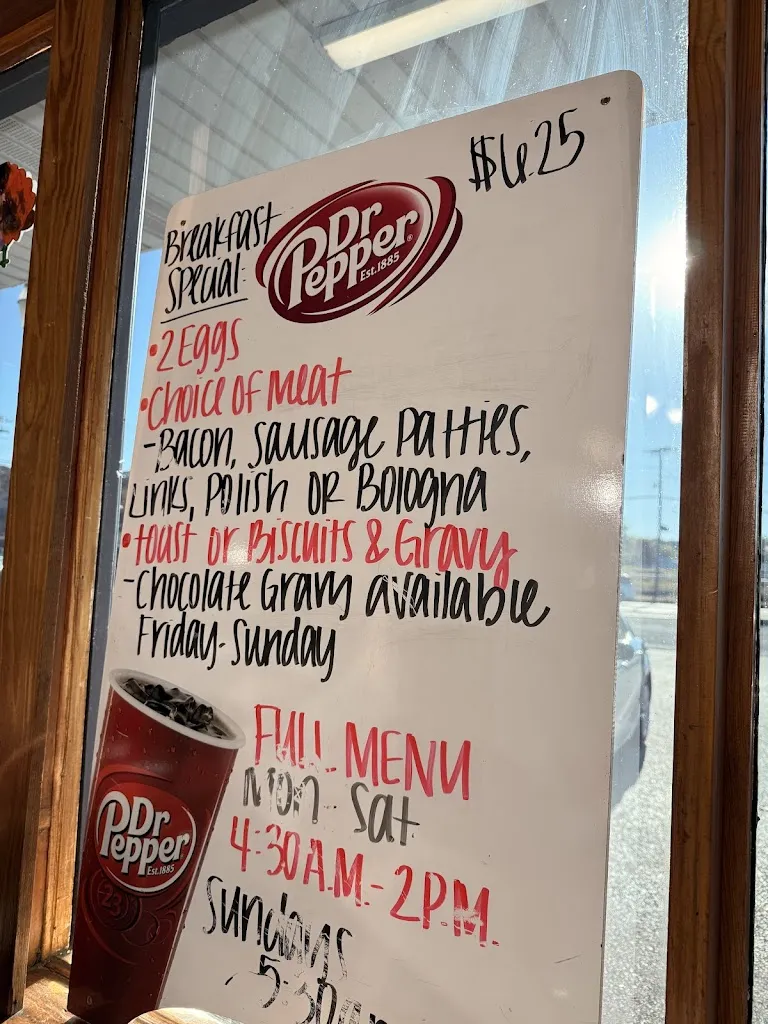 $6.25
Breakfast
Special:
Dr
Pepper
Est.1885
•2 Eggs
•Choice of meat
-Bacon, Sausage Patties,
Links, Polish OR Bologna
•toast or Biscuits & Gravy
-Chocolate Gravy available
Friday-Sunday
FULL MENU
Mon-Sat
4:30A.M.-2P.M.
Dr
Pepper
Est.1885
23
Sundays
5:30